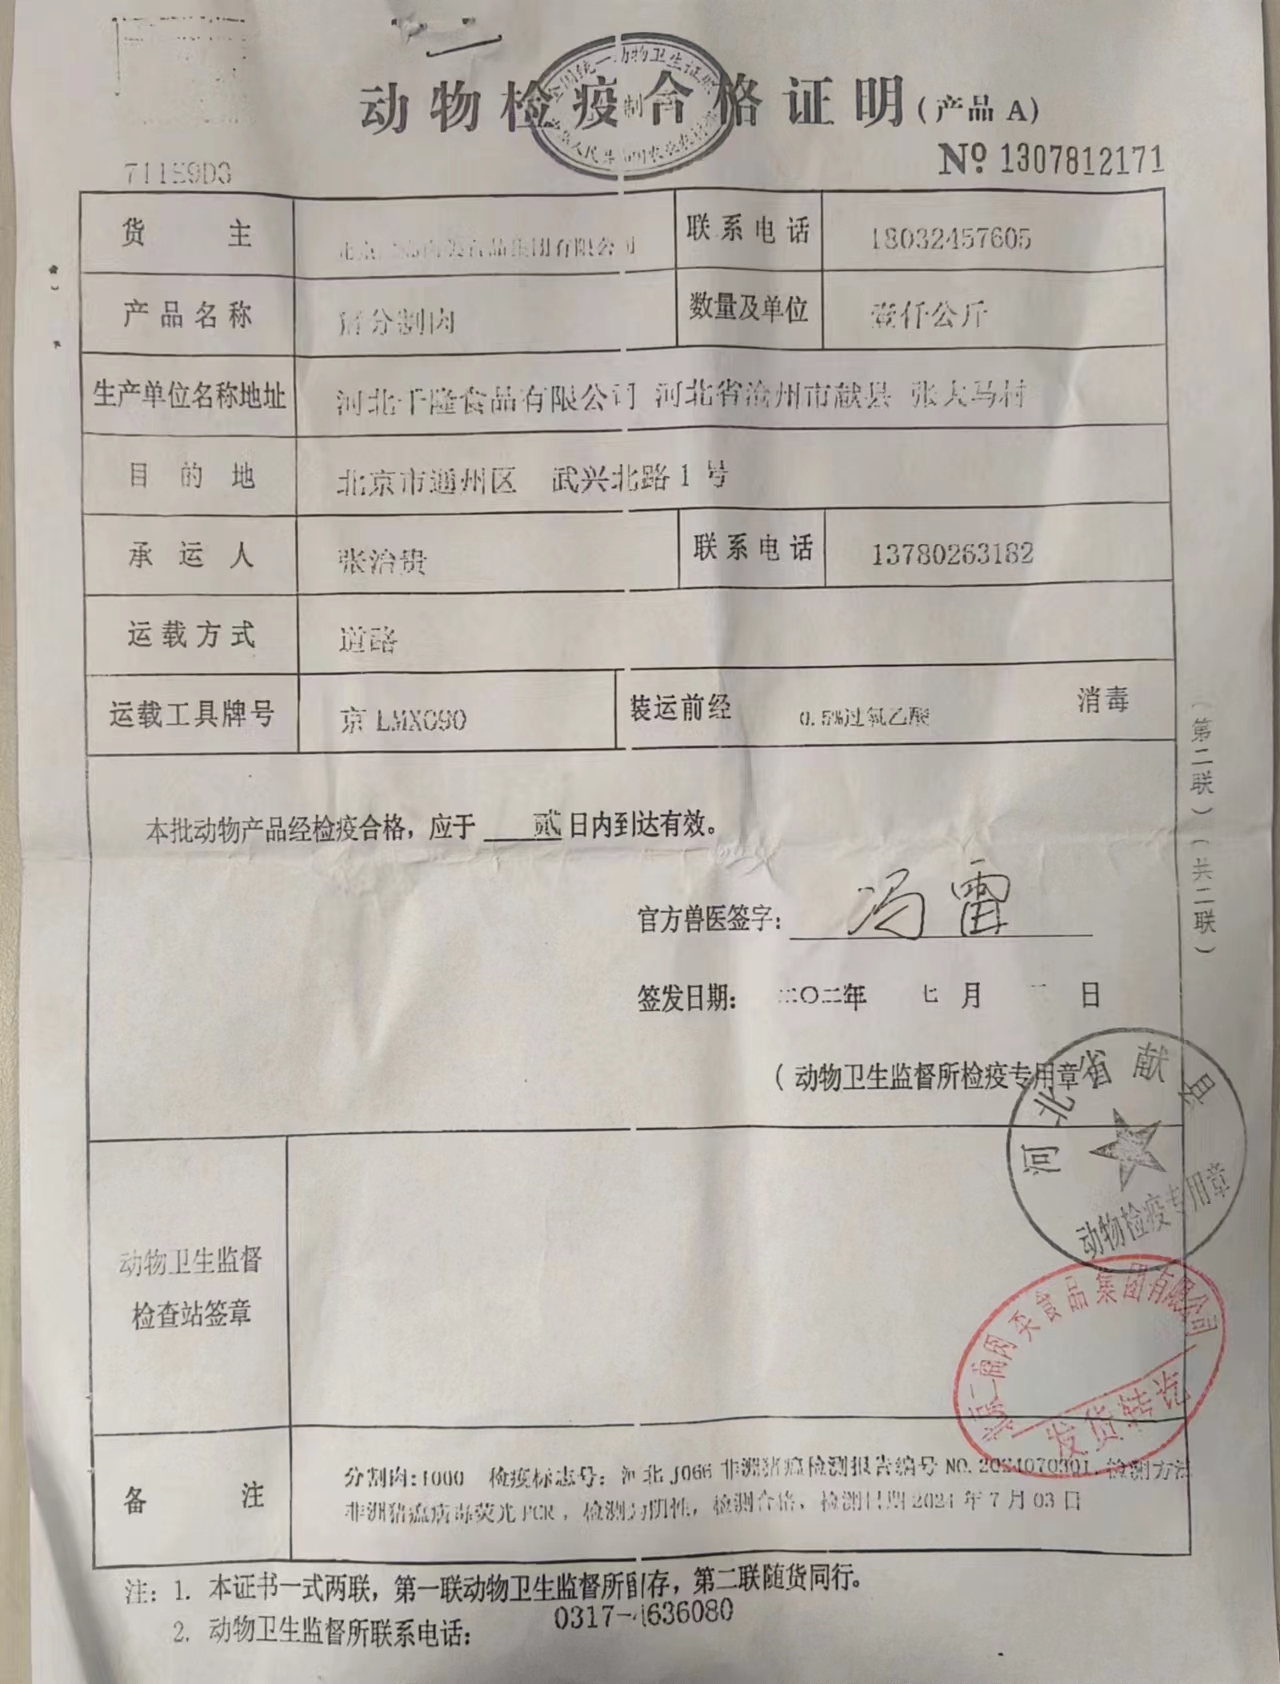 动物检疫合格证明(产品 A)
711E9D3
Nº 1307812171
货主
食品集团有限公司
联系电话
18032457605
产品名称
分割肉
数量及单位
壹仟公斤
生产单位名称地址
河北千隆食品有限公司 河北省沧州市献县 张大马村
目的地
北京市通州区 武兴北路1号
承运人
张治贵
联系电话
13780263182
运载方式
道路
运载工具牌号
京 LMX090
装运前经 0.5%过氧乙酸 消毒
本批动物产品经检疫合格，应于 贰 日内到达有效。
官方兽医签字: 冯雷
签发日期: 二〇二 年 七 月 日
(动物卫生监督所检疫专用章)
河北省献县
动物检疫专用章
动物卫生监督
检查站签章
食品集团有限公司
发货转讫
备注
分割肉:1000 检疫标志号: 河北 J066 非洲猪瘟检测报告编号 NO. 2024070301, 检测方法
非洲猪瘟病毒荧光PCR，检测为阴性，检测合格，检测日期2024 年 7 月 03 日
注: 1. 本证书一式两联，第一联动物卫生监督所留存，第二联随货同行。
2. 动物卫生监督所联系电话: 0317-4636080
(第二联)(共二联)